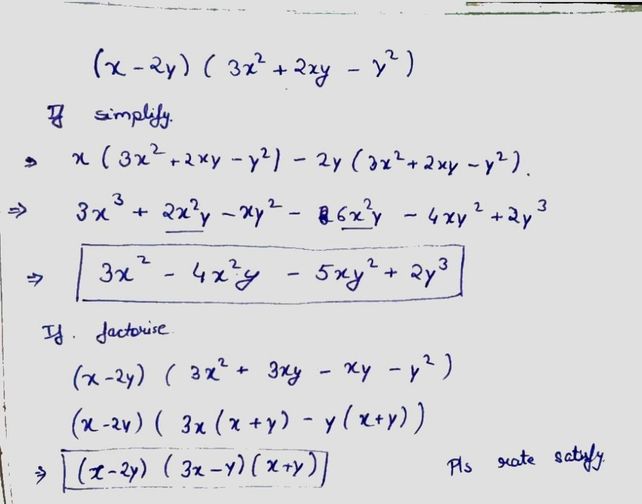 (x - 2y) ( 3x² + 2xy - y² )
If simplify.
⇒ x ( 3x² + 2xy - y² ) - 2y ( 3x² + 2xy - y² ).
⇒ 3x³ + 2x²y - xy² - 6x²y - 4xy² + 2y³
⇒ 3x² - 4x²y - 5xy² + 2y³
If. factorise
(x - 2y) ( 3x² + 3xy - xy - y² )
(x - 2y) ( 3x (x + y) - y (x + y) )
⇒ (x - 2y) ( 3x - y) (x + y)
Pls rate satisfy.